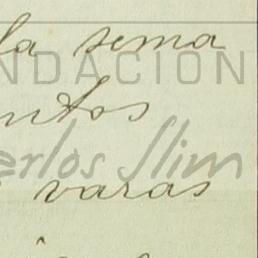 la sema
NDACIÓN
ntos
Carlos Slim
varas